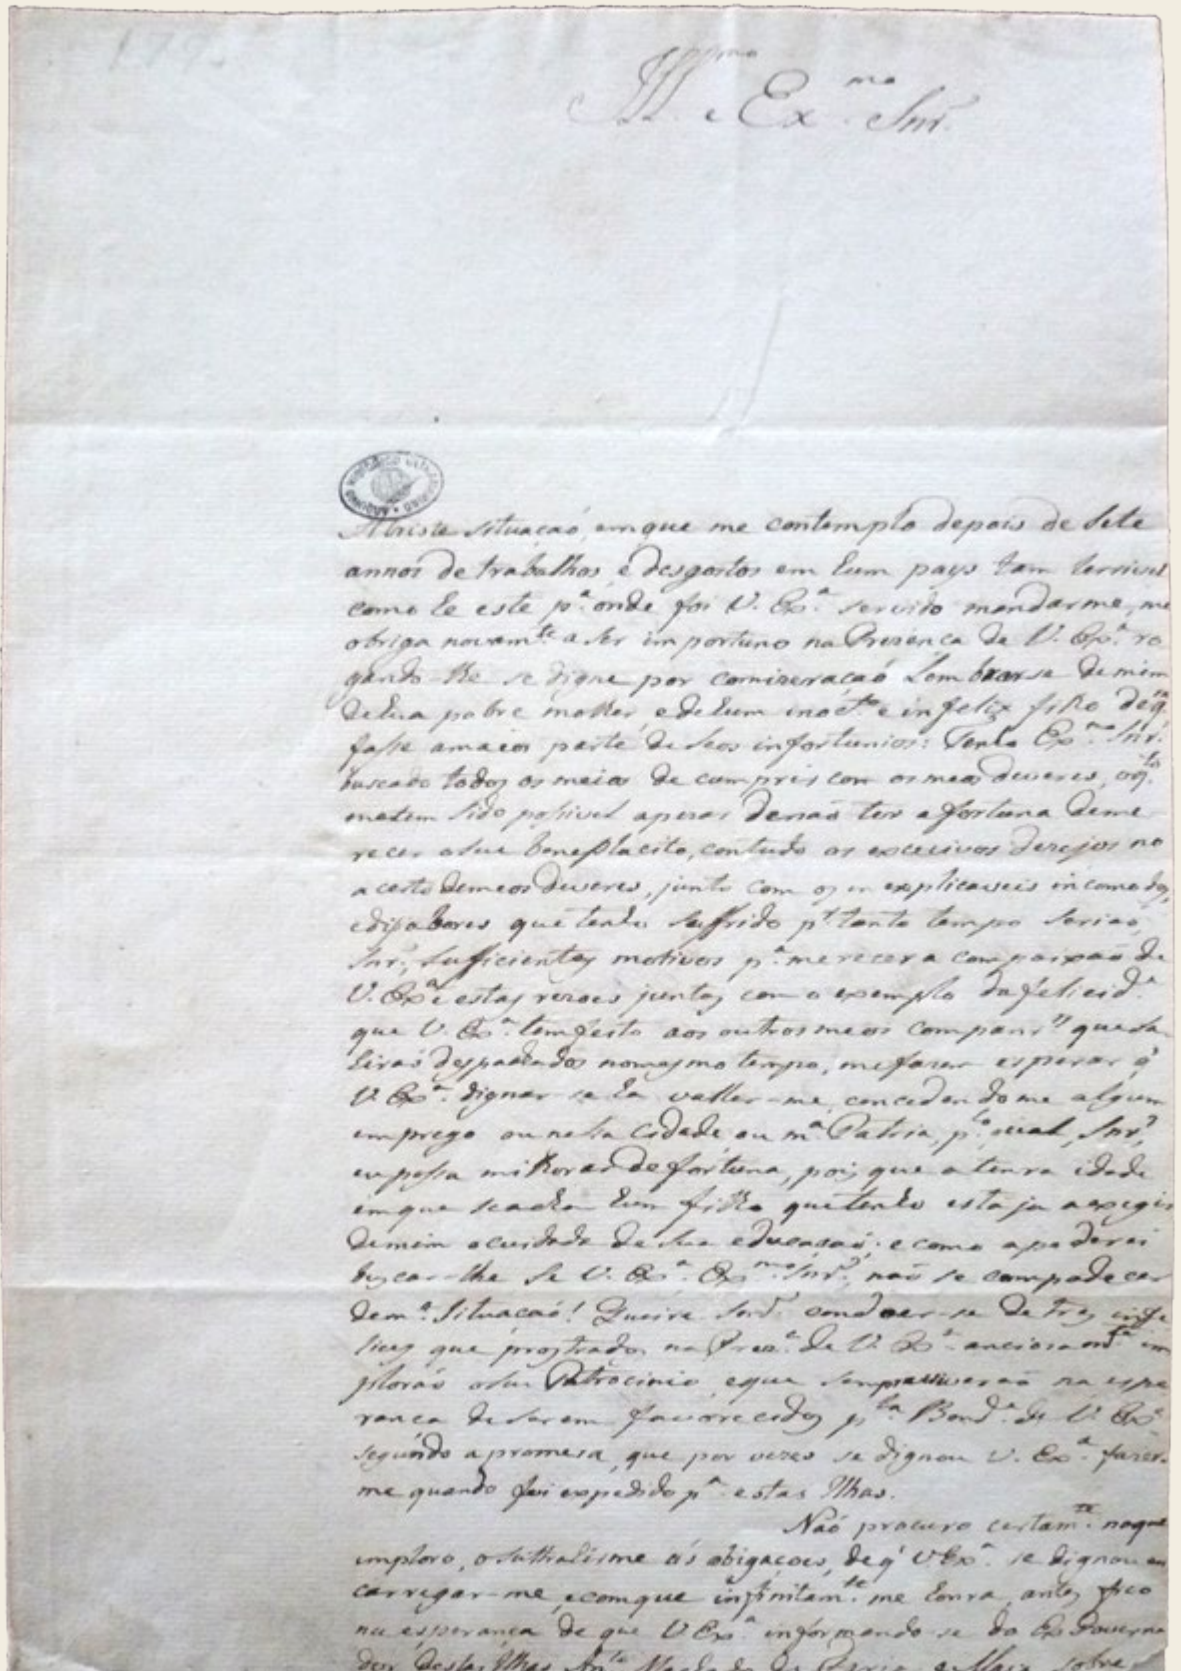 179
Ill.mo e Ex.mo Snr.
A triste situaçaõ, em que me contemplo depois de sete
annos de trabalhos, e desgostos em hum pays tam terrivel
como he este p.a onde foi V. Ex.a servido mandarme, me
obriga novam.te a ser importuno na Presença de V. Ex.a ro
gando-lhe se digne por comizeraçaõ Lembrarse de mim
de hua pobre molher, e de hum inoc.te e infelix filho de q.m
fasse a maior parte de seos infortunios: Tenho Ex.mo Snr.
buscado todos os meios de cumprir com os meos deveres, oq.to
metem sido posivel apezar denaõ ter a fortuna deme
recer o seu beneplacito, contudo os excecivos dezejos no
acerto demeos deveres, junto com os inexplicaveis incomodos,
edisabores que tenho soffrido p.r tanto tempo seriaõ,
Snr., sufficientes motivos p.a merecer a compaixaõ de
V. Ex.a e estas rezoes juntas com o exemplo da felicid.e
que V. Ex.a tem feito aos outros meos companr.os que sa
hiraõ despachados nomesmo tempo, mefazem esperar q'
V. Ex.a dignar-se ha valler-me, concedendome algum
emprego ou nessa Cidade, ou m.a Patria, p.lo qual, Snr.,
eu possa milhorar de fortuna, pois que a tenra idade
emque seacha hum filho quetenho esta ja a exegir
demim o cuidado de sua educasaõ; e como a poderei
buscar-lhe se V. Ex.a Ex.mo Snr., naõ se compadecer
dem.a Situaçaõ! Queira Snr. condoer-se de tres infe
lices que prostrados na Prez.a de V. Ex.a anciosam.te im
ploraõ oseu Patrocinio, eque sempre viveraõ na espe
rança de serem favorecidos p.la Bond.e de V. Ex.a
segundo a promesa, que por vezes se dignou V. Ex.a fazer-
me quando fui expedido p.a estas Ilhas.
Naõ procuro certam.te noque
imploro, o suttrahirme ás obigaçoes, de q' V Ex.a se dignou en
carregar-me, ecomque infinitam.te me honra, antes fico
na esperança de que V Ex.a informando-se do Ex Governa
dor destas Ilhas Ant.o Machado de Faria, e Maia, sobre